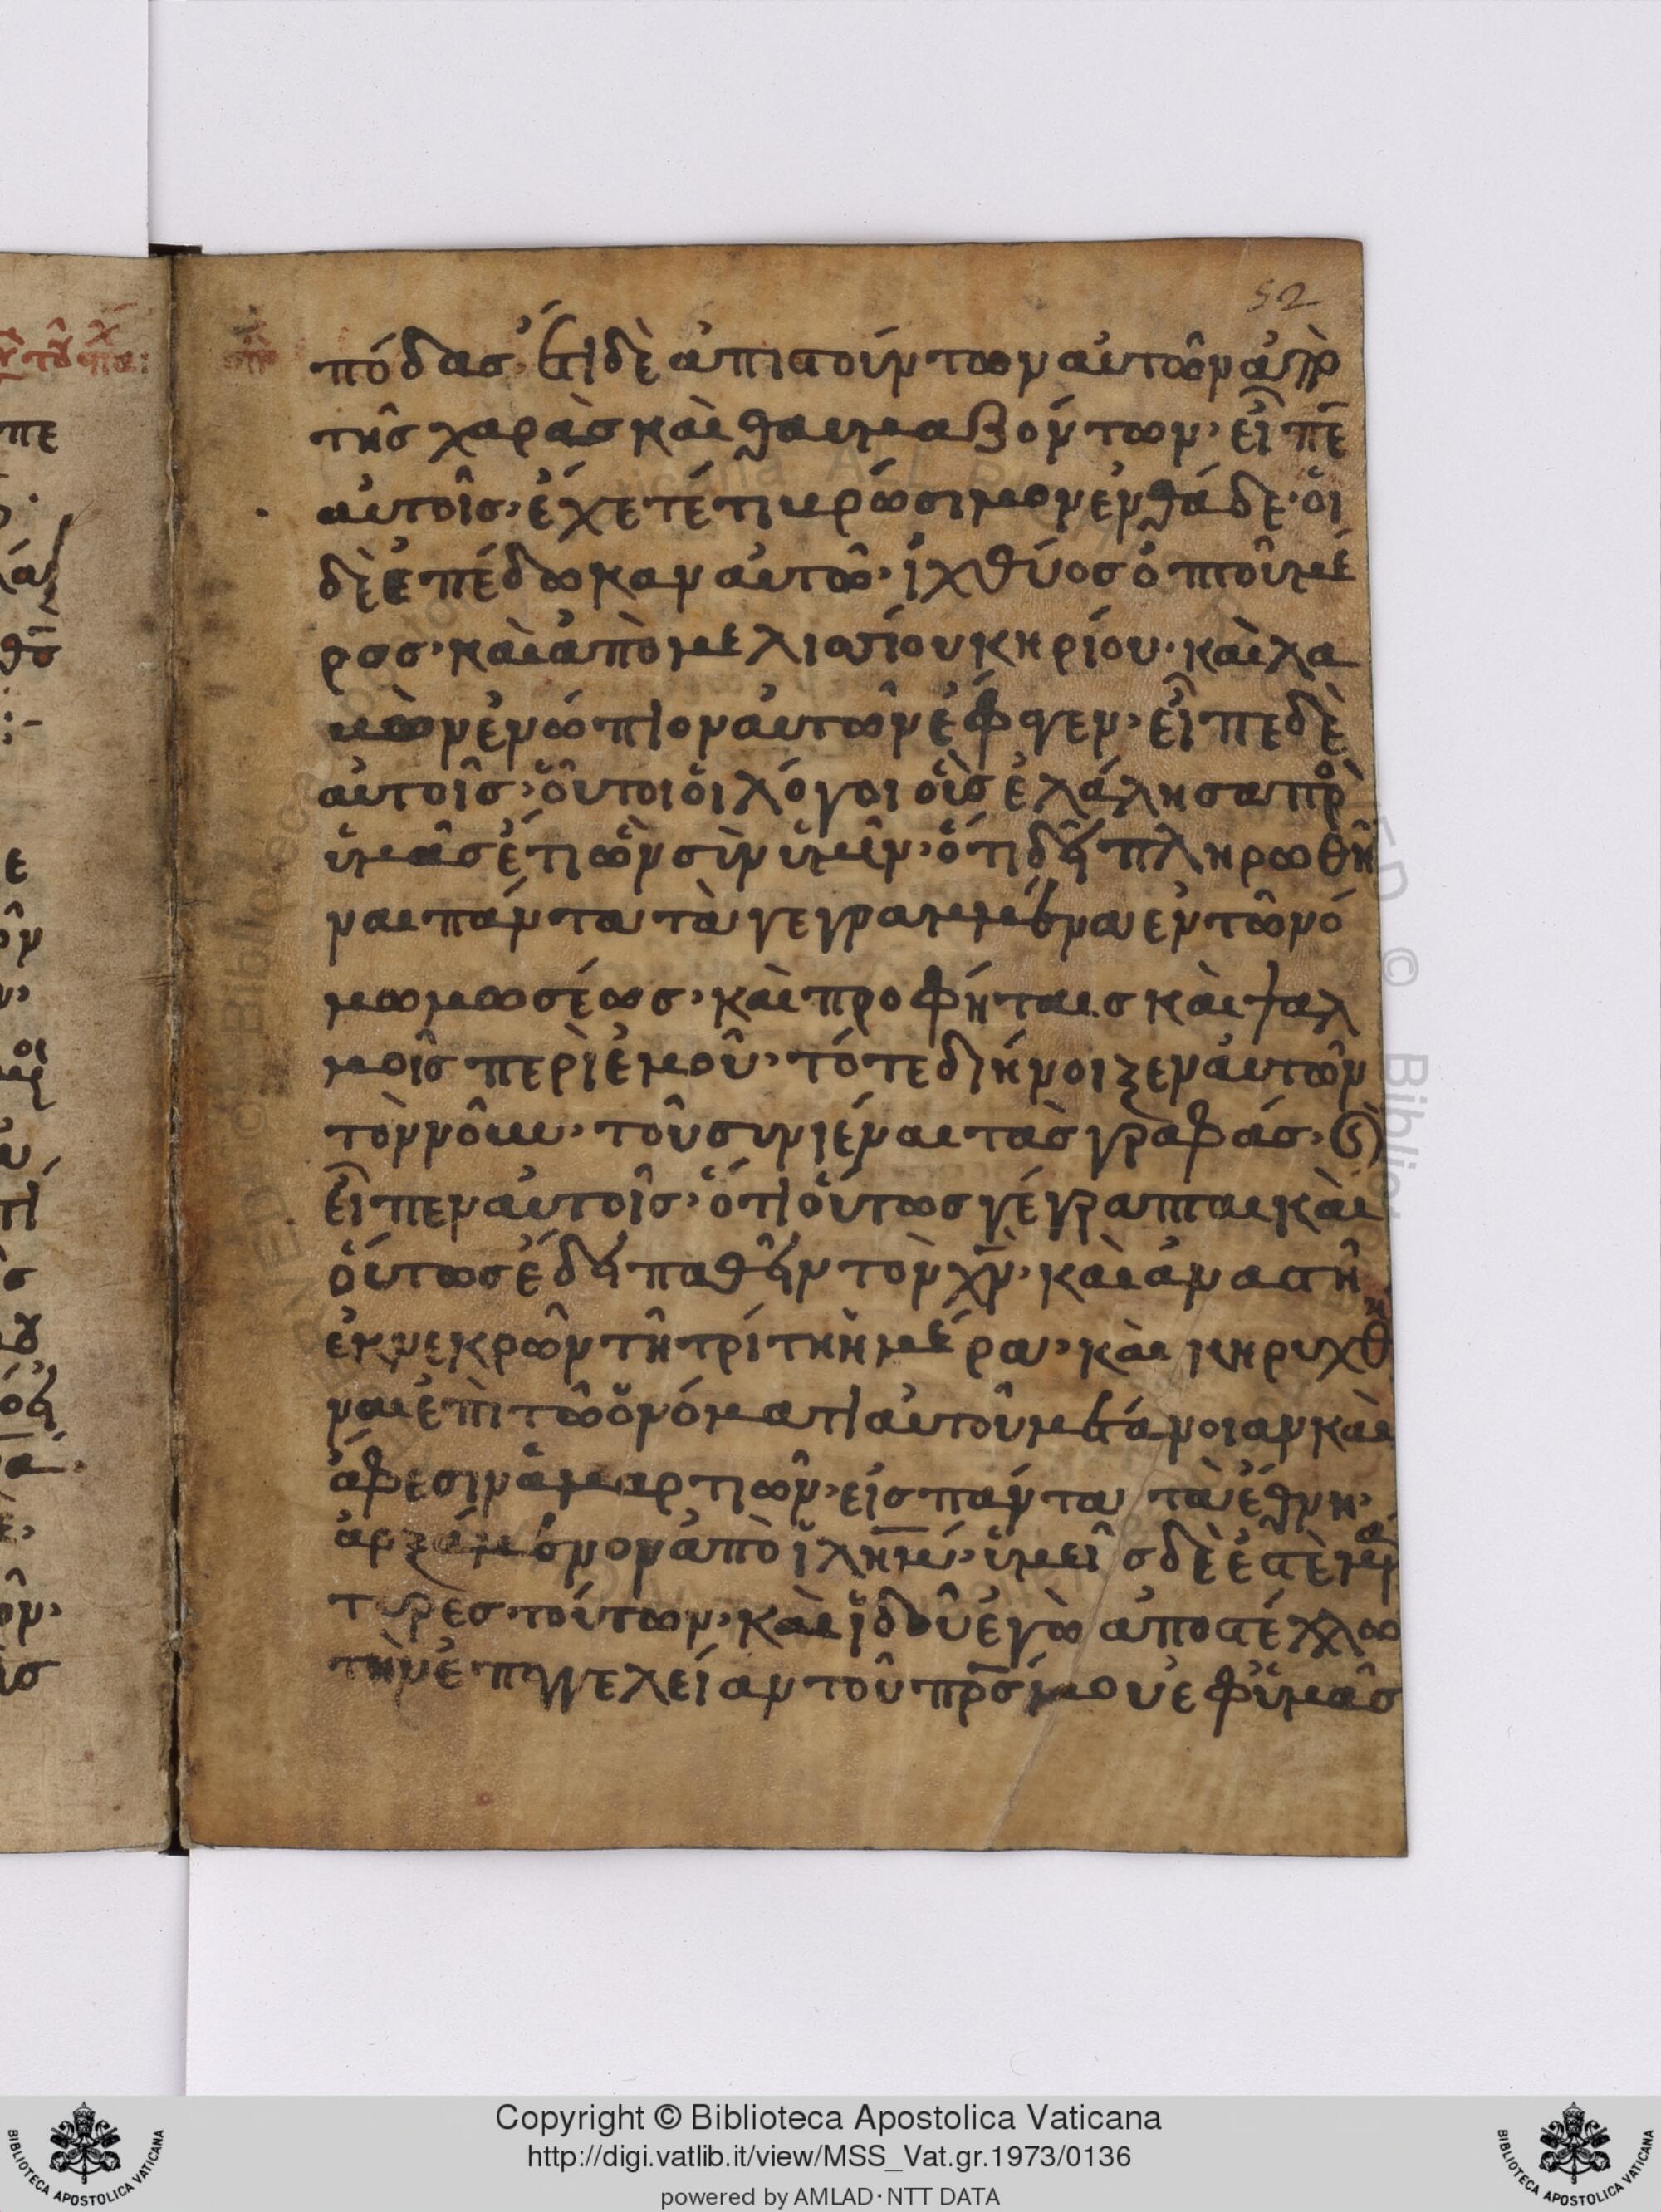 52
πόδας· ἔτι δὲ ἀπιστούντων αὐτῶν ἀπὸ
τῆς χαρὰς καὶ θαυμαζόντων· εἶπε
αὐτοῖς· ἔχετέ τι βρώσιμον ἐνθάδε· οἱ
δὲ ἐπέδωκαν αὐτῶ· ἰχθύος ὀπτοῦ μέ
ρος· καὶ ἀπὸ μελισσίου κηρίου· καὶ λα
βὼν ἐνώπιον αὐτῶν ἔφαγεν· εἶπε δὲ
αὐτοῖς· οὗτοι οἱ λόγοι οἷς ἐλάλησα πρὸ
ὑμᾶς ἔτι ὢν σὺν ὑμῖν· ὅτι δεῖ πληρωθῆ
ναι πάντα τὰ γεγραμμένα ἐν τῶ νό
μω μωσέως· καὶ προφήταις καὶ ψαλ
μοῖς περὶ ἐμοῦ· τότε διήνοιξεν αὐτῶν
τὸν νοῦν· τοῦ συνιέναι τὰς γραφάς· ϗ
εἶπεν αὐτοῖς· ὅτι οὕτως γέγραπται καὶ
οὕτως ἔδει παθεῖν τὸν χν· καὶ ἀναστῆ
ἐκ νεκρῶν τῆ τρίτη ἡμέρα· καὶ κηρυχθῆ
ναι ἐπὶ τῶ ὀνόματι αὐτοῦ μετάνοιαν καὶ
ἄφεσιν ἁμαρτιῶν· εἰς πάντα τὰ ἔθνη·
ἀρξάμενον ἀπὸ ἰλημ· ὑμεῖς δὲ ἐστὲ μάρ
τυρες τούτων· καὶ ἰδοῦ ἐγὼ ἀποστέλλω
τὴν ἐπαγγελείαν τοῦ πρς μου ἐφ ὑμᾶς
Copyright © Biblioteca Apostolica Vaticana
http://digi.vatlib.it/view/MSS_Vat.gr.1973/0136
powered by AMLAD·NTT DATA
BIBLIOTECA APOSTOLICA VATICANA
BIBLIOTECA APOSTOLICA VATICANA